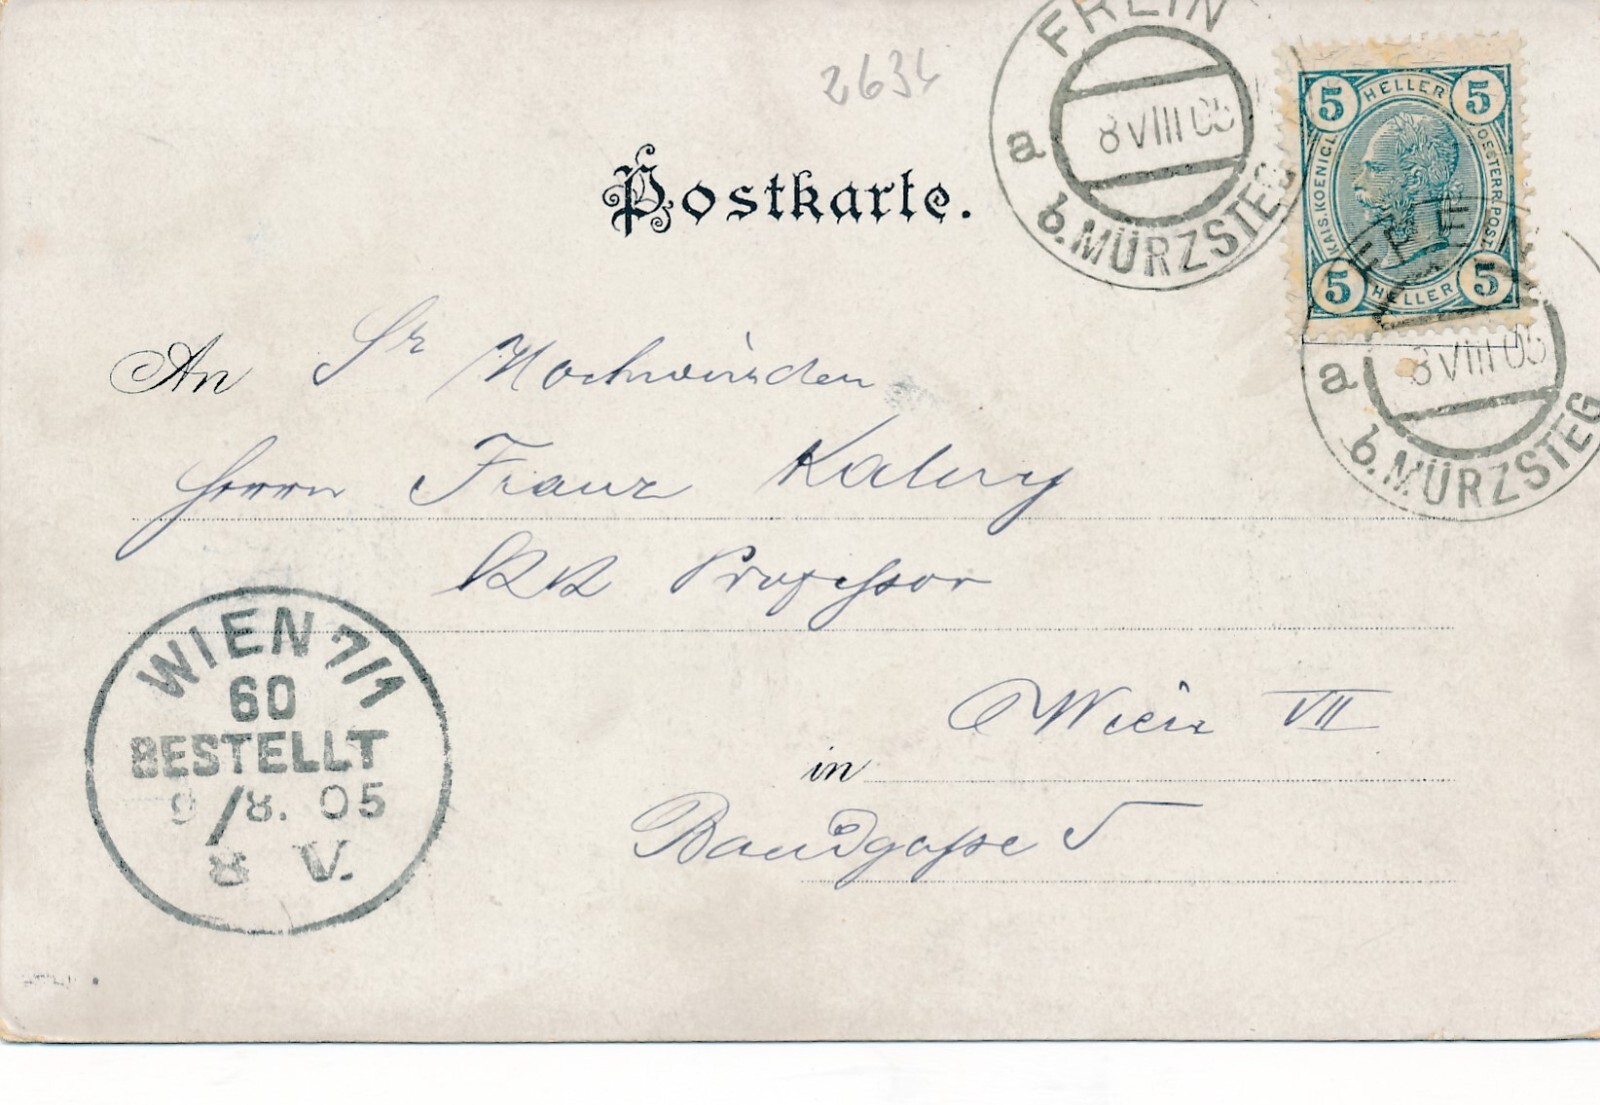 2634
FREIN
a 8 VIII 05
b. MÜRZSTEG
5 HELLER 5
KAIS. KOENIGL. OESTERR. POST.
5 HELLER 5
Postkarte.
FREIN
a 8 VIII 05
b. MÜRZSTEG
An Sr Hochwürden
Herrn Franz
KK Professor
WIEN 7/1
60
BESTELLT
9/8. 05
8 V.
in Wien VII
Bandgasse 5